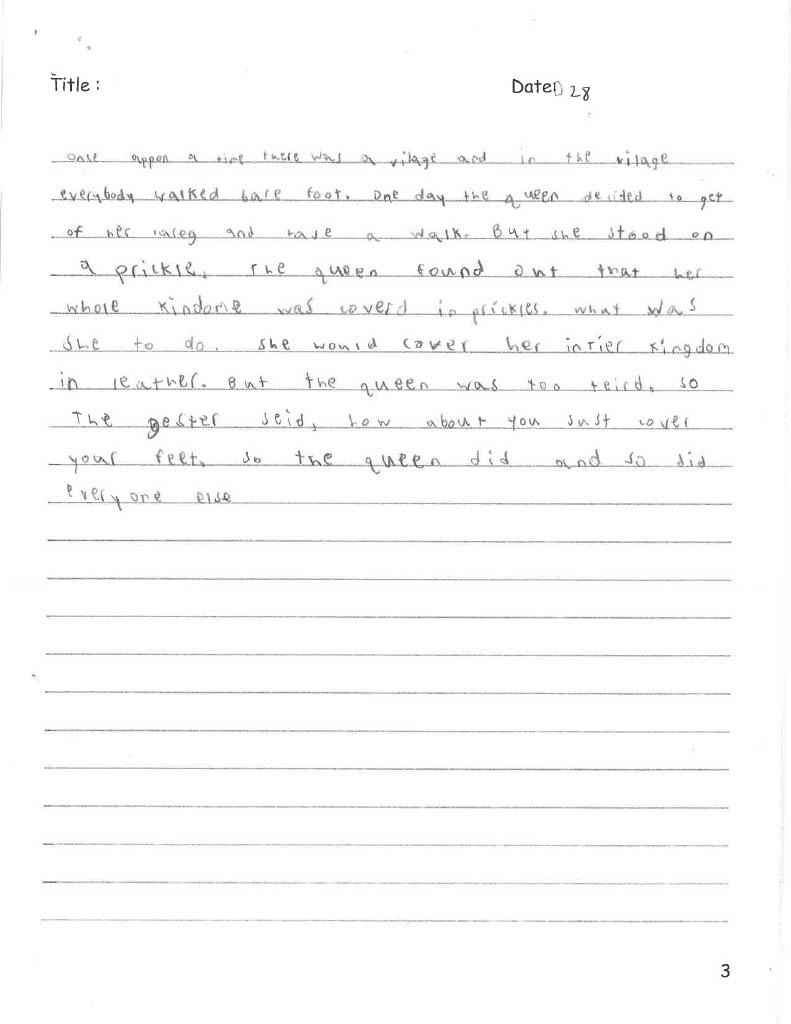 Title : Date: D 28
once appon a time there was a vilage and in the vilage
everybody walked bare foot. One day the queen decided to get
of her careg and have a walk. But she stood on
a prickle. The queen found out that her
whole kindome was coverd in prickles. what was
she to do. she would cover her intier kingdom
in leather. But the queen was too teird. so
The gester seid, how about you just cover
your feet. so the queen did and so did
everyone else
3